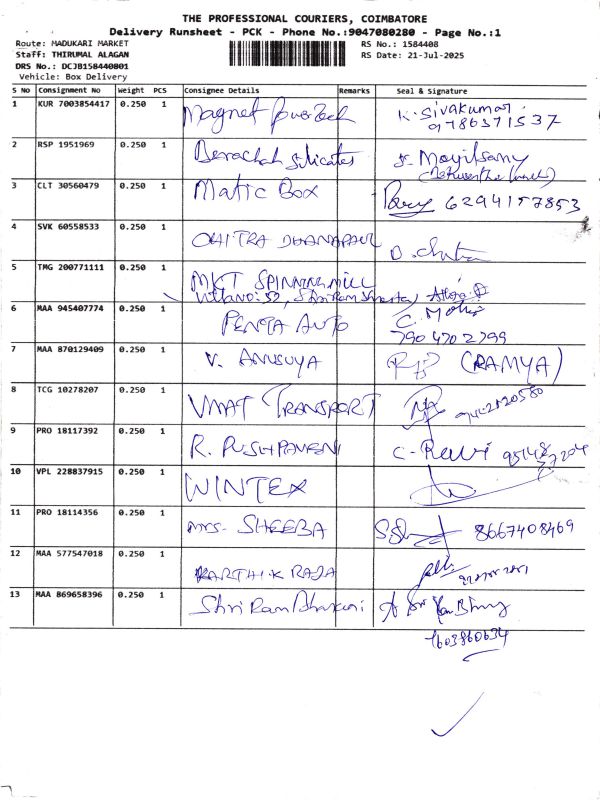 THE PROFESSIONAL COURIERS, COIMBATORE
Delivery Runsheet - PCK - Phone No.:9047080280 - Page No.:1
Route: MADUKARI MARKET RS No.: 1584408
Staff: THIRUMAL ALAGAN RS Date: 21-Jul-2025
DRS No.: DCJB158440801
Vehicle: Box Delivery
S No Consignment No Weight PCS Consignee Details Remarks Seal & Signature
1 KUR 7003854417 0.250 1 Magnet PowerTech K. Sivakumar
9786371537
2 RSP 1951969 0.250 1 Berachah silicates
3 CLT 30560479 0.250 1 Matic Box 6294157853
4 SVK 60558533 0.250 1 CHITRA DHANAPAUL D. Chitra
5 TMG 200771111 0.250 1 MKT SPINNING MILL
Villano: 52,
6 MAA 945407774 0.250 1 PENTA AUTO C. Mohi
790 470 2799
7 MAA 870129409 0.250 1 V. ANUSUYA (RAMYA)
8 TCG 10278207 0.250 1 VMAT TRANSPORT
9 PRO 18117392 0.250 1 R. PUSHPAVENI C. Ravi
10 VPL 228837915 0.250 1 WINTEX
11 PRO 18114356 0.250 1 MRS. SHEEBA 8667408469
12 MAA 577547018 0.250 1 KARTHIK RAJA
13 MAA 869658396 0.250 1 Shri Ram
7603860634